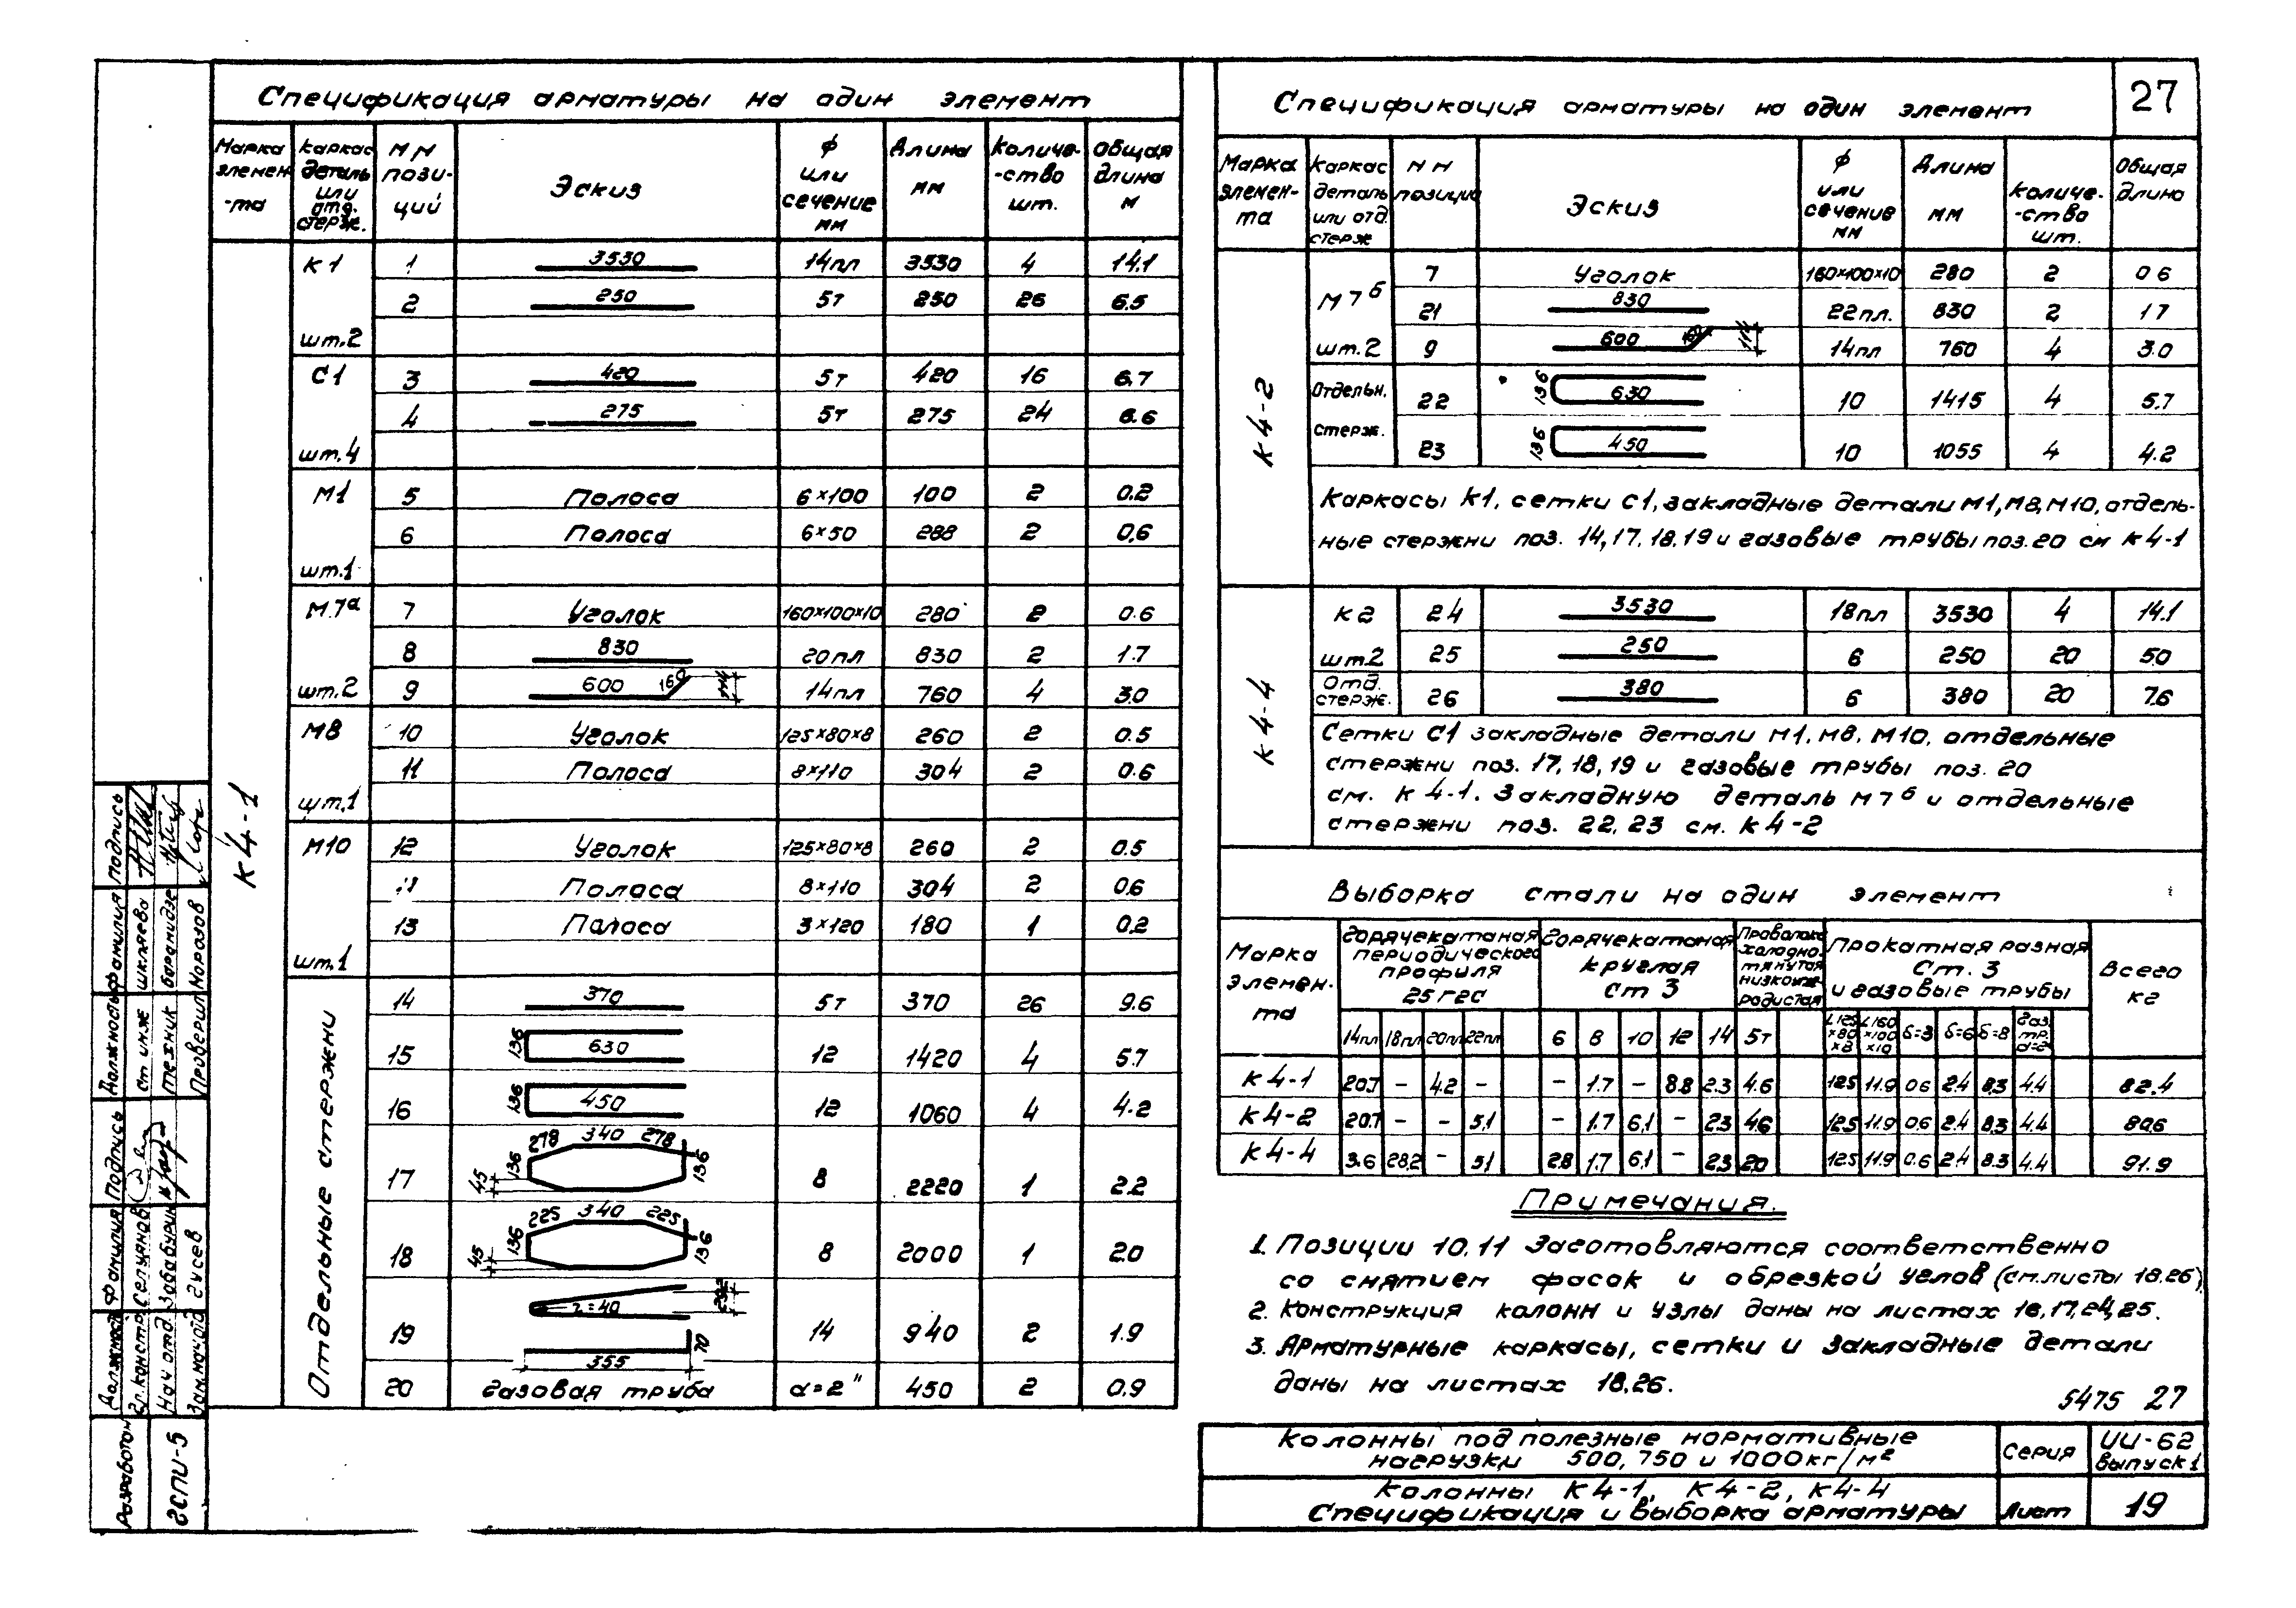 27
Спецификация арматуры на один элемент
Марка элемен-та | каркас деталь или отд. стерж. | NN пози-ций | Эскиз | ф или сечение мм | Длина мм | Количе-ство шт. | Общая длина м
К4-1
К1 шт.2
1 | 3530 | 14пл | 3530 | 4 | 14.1
2 | 250 | 5т | 250 | 26 | 6.5
С1 шт.4
3 | 420 | 5т | 420 | 16 | 6.7
4 | 275 | 5т | 275 | 24 | 6.6
М1 шт.1
5 | Полоса | 6×100 | 100 | 2 | 0.2
6 | Полоса | 6×50 | 288 | 2 | 0.6
М7а шт.2
7 | Уголок | 160×100×10 | 280 | 2 | 0.6
8 | 830 | 20пл | 830 | 2 | 1.7
9 | 600 160 | 14пл | 760 | 4 | 3.0
М8 шт.1
10 | Уголок | 125×80×8 | 260 | 2 | 0.5
11 | Полоса | 8×110 | 304 | 2 | 0.6
М10 шт.1
12 | Уголок | 125×80×8 | 260 | 2 | 0.5
11 | Полоса | 8×110 | 304 | 2 | 0.6
13 | Полоса | 3×120 | 180 | 1 | 0.2
Отдельные стержни
14 | 370 | 5т | 370 | 26 | 9.6
15 | 136 630 | 12 | 1420 | 4 | 5.7
16 | 136 450 | 12 | 1060 | 4 | 4.2
17 | 278 340 278 136 136 45 | 8 | 2220 | 1 | 2.2
18 | 225 340 225 136 136 45 | 8 | 2000 | 1 | 2.0
19 | r=40 355 70 | 14 | 940 | 2 | 1.9
20 | газовая труба | d=2" | 450 | 2 | 0.9
Спецификация арматуры на один элемент
Марка элемен-та | Каркас деталь или отд стерж | NN позиция | Эскиз | ф или сечение мм | Длина мм | Количе-ство шт. | Общая длина
К4-2
М7б шт.2
7 | Уголок | 160×100×10 | 280 | 2 | 0 6
21 | 830 | 22пл. | 830 | 2 | 1 7
9 | 600 | 14пл | 760 | 4 | 3.0
Отдельн. стерж.
22 | 136 630 | 10 | 1415 | 4 | 5.7
23 | 136 450 | 10 | 1055 | 4 | 4.2
Каркасы К1, сетки С1, закладные детали М1, М8, М10, отдель-
ные стержни поз. 14, 17, 18, 19 и газовые трубы поз. 20 см К4-1
К4-4
К2 шт.2
24 | 3530 | 18пл | 3530 | 4 | 14.1
25 | 250 | 6 | 250 | 20 | 5.0
Отд. стерж.
26 | 380 | 6 | 380 | 20 | 7.6
Сетки С1 закладные детали М1, М8, М10, отдельные
стержни поз. 17, 18, 19 и газовые трубы поз. 20
см. К 4-1. Закладную деталь М7б и отдельные
стержни поз. 22, 23 см. К4-2
Выборка стали на один элемент
Марка элемен-та | Горячекатаная периодического профиля 25г2с | Горячекатаная круглая Ст 3 | Проволока холодно-тянутая низкоугле-родистая | Прокатная разная Ст. 3 и газовые трубы | Всего кг
14пл | 18пл | 20пл | 22пл | 6 | 8 | 10 | 12 | 14 | 5т | L125×80×8 | L160×100×10 | δ=3 | δ=6 | δ=8 | Газ. тр. d=2"
К4-1 | 20.7 | – | 4.2 | – | – | 1.7 | – | 8.8 | 2.3 | 4.6 | 12.5 | 11.9 | 0.6 | 2.4 | 8.3 | 4.4 | 82.4
К4-2 | 20.7 | – | – | 5.1 | – | 1.7 | 6.1 | – | 2.3 | 4.6 | 12.5 | 11.9 | 0.6 | 2.4 | 8.3 | 4.4 | 80.6
К4-4 | 3.6 | 28.2 | – | 5.1 | 2.8 | 1.7 | 6.1 | – | 2.3 | 2.0 | 12.5 | 11.9 | 0.6 | 2.4 | 8.3 | 4.4 | 91.9
Примечания.
1. Позиции 10, 11 заготовляются соответственно
со снятием фасок и обрезкой углов (см.листы 18.26)
2. Конструкция колонн и узлы даны на листах 16, 17, 24, 25.
3. Арматурные каркасы, сетки и закладные детали
даны на листах 18.26.
5475 27
Колонны под полезные нормативные
нагрузки 500, 750 и 1000 кг/м²
Серия
ИИ-62
Выпуск 1
Колонны К4-1, К4-2, К4-4
Спецификация и выборка арматуры
Лист
19
Должность | Фамилия | Подпись
ст инж | Шкляева
техник | Барамидзе
Проверил | Морозов
Должность | Фамилия | Подпись
Гл.констр | Селуянов
Нач отд. | Забабурин
Зам.нач.отд | Гусев
Разработан
ГСПИ-5